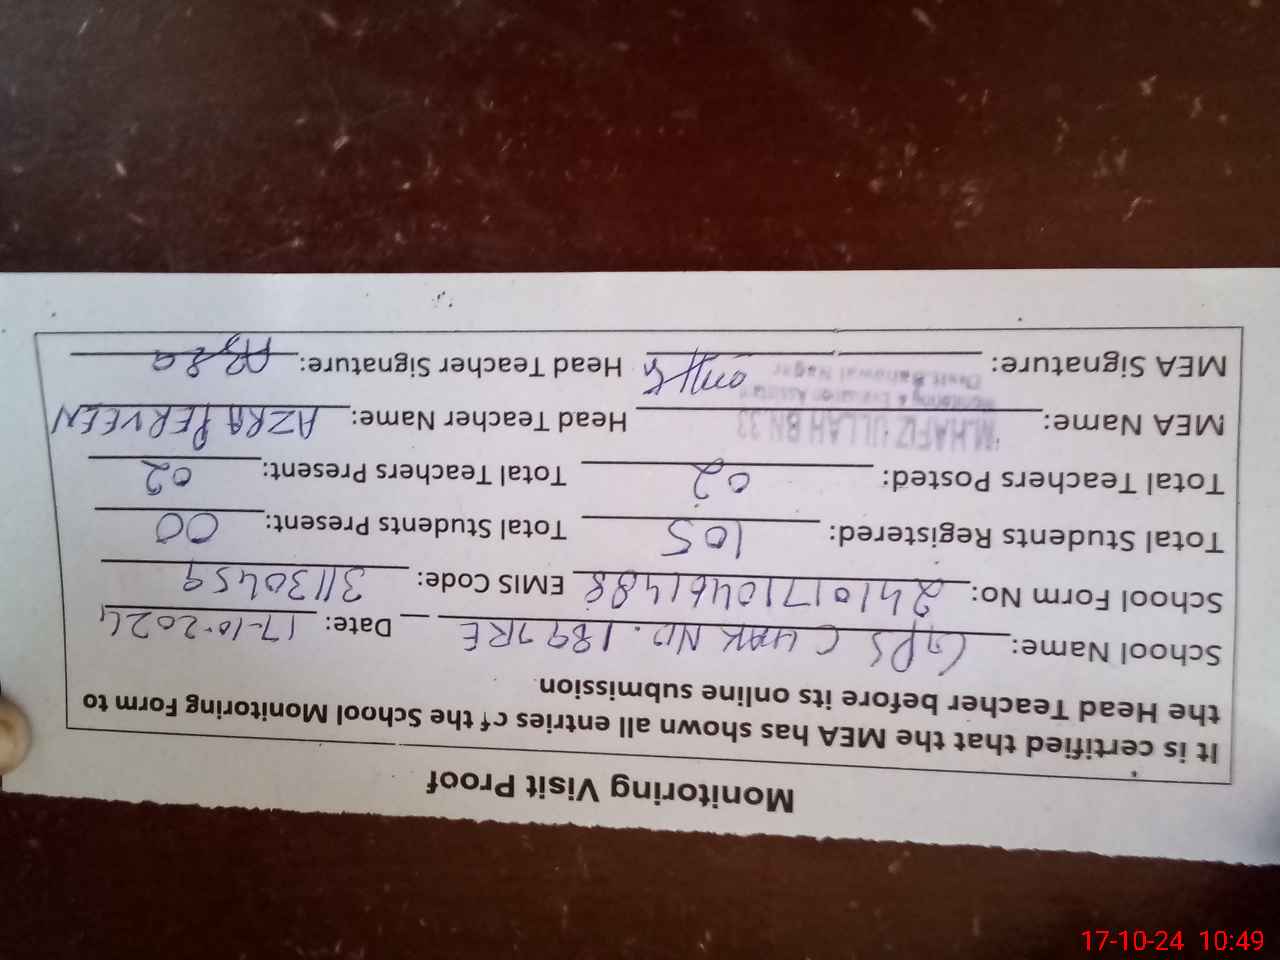 Monitoring Visit Proof
It is certified that the MEA has shown all entries of the School Monitoring Form to
the Head Teacher before its online submission.
School Name: GPS CHAK NO. 189 7RE Date: 17-10-2024
School Form No: 24101710461488 EMIS Code: 31130459
Total Students Registered: 105 Total Students Present: 00
Total Teachers Posted: 02 Total Teachers Present: 02
MEA Name: M.HAFIZ ULLAH BN 33 Head Teacher Name: AZRA PERVEEN
Monitoring & Evaluation Assistant
Distt. Bahawal Nagar
MEA Signature: Head Teacher Signature: Azra
17-10-24 10:49